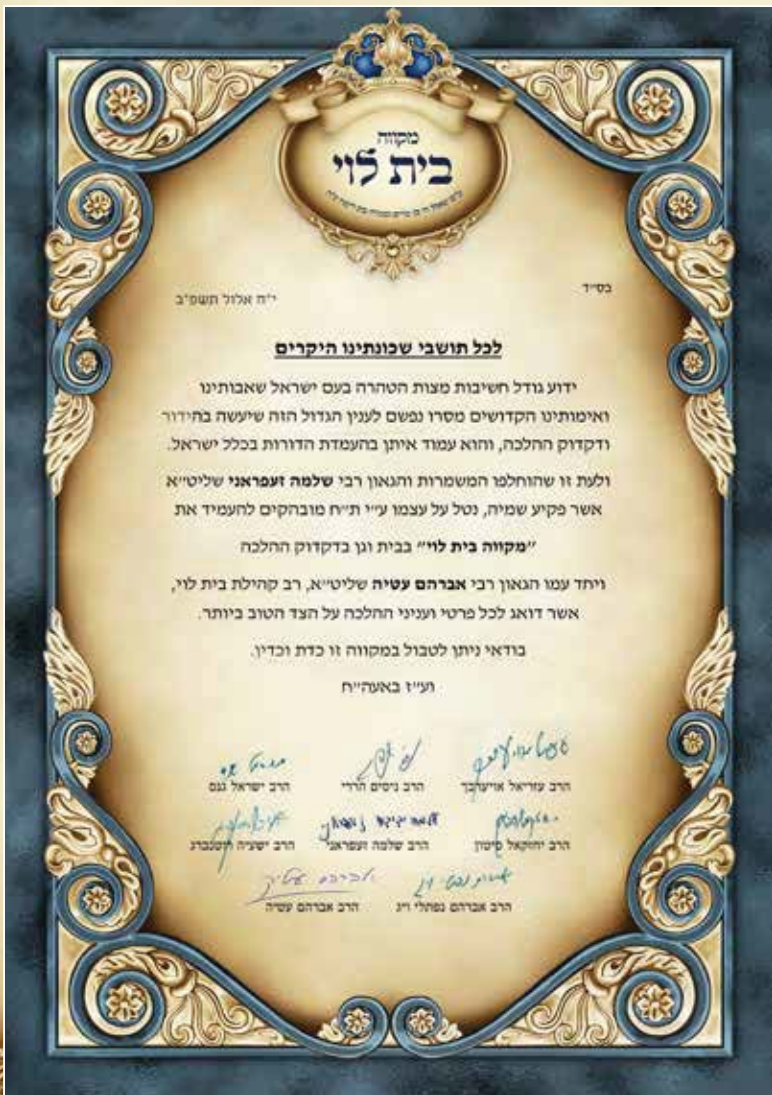 מקווה
בית לוי
בס״ד
י״ח אלול תשפ״ב
לכל תושבי שכונתינו היקרים
ידוע גודל חשיבות מצות הטהרה בעם ישראל שאבותינו
ואימותינו הקדושים מסרו נפשם לענין הגדול הזה שיעשה בהידור
ודקדוק ההלכה, והוא עמוד איתן בהעמדת הדורות בכלל ישראל.
ולעת זו שהוחלפו המשמרות והגאון רבי שלמה זעפראני שליט״א
אשר פקיע שמיה, נטל על עצמו ע״י ת״ח מובהקים להעמיד את
״מקווה בית לוי״ בבית וגן בדקדוק ההלכה
ויחד עמו הגאון רבי אברהם עטיה שליט״א, רב קהילת בית לוי,
אשר דואג לכל פרטי ועניני ההלכה על הצד הטוב ביותר.
בודאי ניתן לטבול במקווה זו כדת וכדין.
וע״ז באעה״ח
הרב עזריאל אויערבך הרב ניסים הררי הרב ישראל גנס
הרב יחזקאל סיטון הרב שלמה זעפראני הרב ישעיה
הרב אברהם נפתלי ויג הרב אברהם עטיה